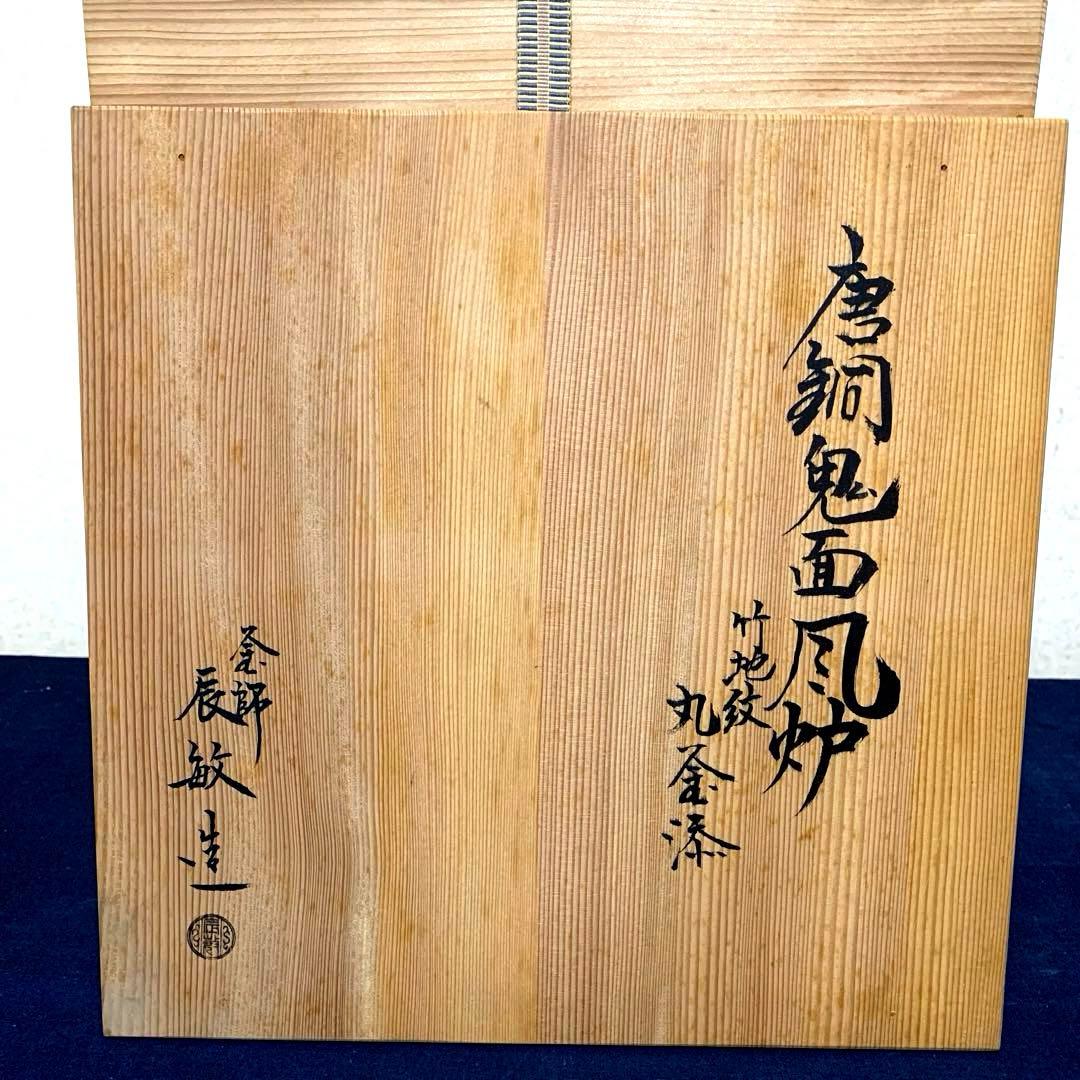 唐銅鬼面风炉
竹地紋
丸釜添
釜師
辰敏造